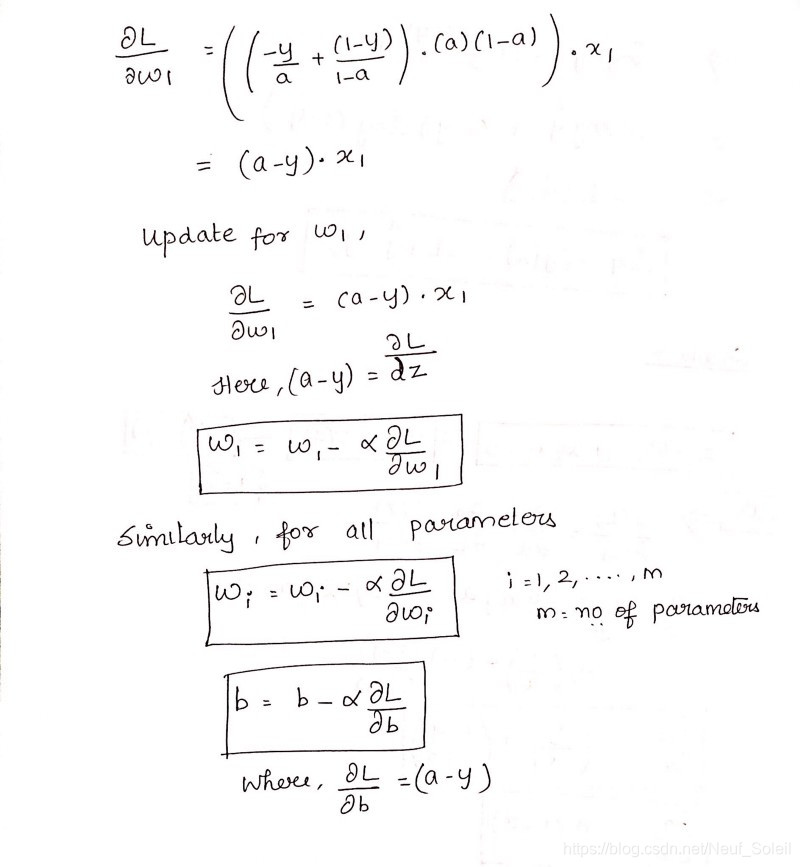 ∂L/∂w₁ = ((-y/a + (1-y)/1-a) · (a)(1-a)) · x₁
= (a-y) · x₁
Update for w₁,
∂L/∂w₁ = (a-y) · x₁
Here, (a-y) = ∂L/dz
w₁ = w₁ - α ∂L/∂w₁
Similarly, for all parameters
wᵢ = wᵢ - α ∂L/∂wᵢ i = 1, 2, ....., m
m = no of parameters
b = b - α ∂L/∂b
Where, ∂L/∂b = (a-y)
https://blog.csdn.net/Neuf_Soleil